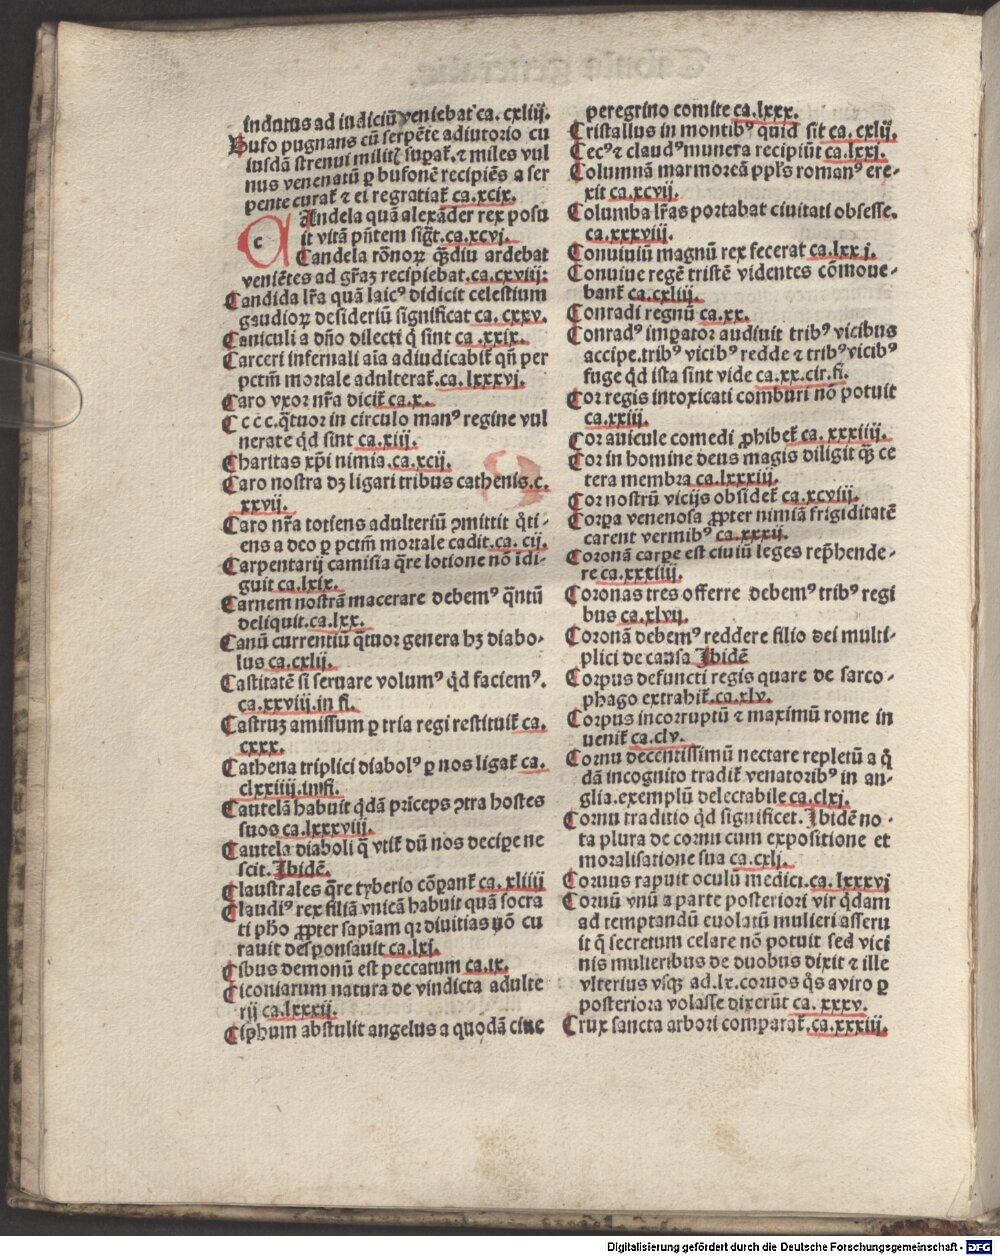 indutus ad iudiciū veniebat ca. cxliij.
Bufo pugnans cū serpēte adiutorio cu
iusdā strenui militꝭ suꝑat̉. ⁊ miles vul
nus venenatū ꝑ bufonē recipiēs a ser
pente curat̉ ⁊ ei regratiat̉ ca. xcix.
c
Candela quā alexāder rex posu
it vitā pn̄tem sigt̄. ca. xcvj.
Candela rōnoꝝ qᷓ̈diu ardebat
veniētes ad gr̄aꝫ recipiebat. ca. cxviij:
Candida lr̄a quā laicꝰ didicit celestium
gaudioꝝ desideriū significat ca. cxxv.
Caniculi a dn̄o dilecti q̇ sint ca. xxix.
Carceri infernali aīa adiudicabit̉ qn̄ per
pctm̄ mortale adulterat̉. ca. lxxxvj.
Caro vxor nr̄a dicit̉ ca. x.
C c c c. qᷓtuor in circulo manꝰ regine vul
nerate qd̓ sint ca. xiij.
Charitas xp̄i nimia. ca. xcij.
Caro nostra dꝫ ligari tribus cathenis. c.
xxvij.
Caro nr̄a totiens adulteriū ꝯmittit q̊ti-
ens a deo ꝑ pctm̄ mortale cadit. ca. cij.
Carpentarij camisia qᷓre lotione nō īdi-
guit ca. lxix.
Carnem nostrā macerare debemꝰ qᷓntū
deliquit. ca. lxx.
Canū currentiū qᷓtuor genera hꝫ diabo-
lus ca. cxlij.
Castitatē si seruare volumꝰ qd̓ faciemꝰ.
ca. xxviij. in fi.
Castruꝫ amissum ꝑ tria regi restituit̉ ca.
cxxx.
Cathena triplici diabolꝰ ꝑ nos ligat̉ ca.
clxxiiij. in fi.
Cautelā habuit qᷓdā prīceps ꝯtra hostes
suos ca. lxxxviij.
Cautela diaboli qᷓ vtit̉ dū nos decipe ne
scit. Ibidē.
Claustrales qᷓre tyberio cōpant̉ ca. xliiij
Claudiꝰ rex filiā vnicā habuit quā socra
ti ph̄o ꝓpter sapīam qꝛ diuitias nō cu
rauit desponsauit ca. lxj.
Cibus demonū est peccatum ca. ix.
Ciconiarum natura de vindicta adulte
rij ca. lxxxij.
Ciphum abstulit angelus a quodā ciue
peregrino comite ca. lxxx.
Cristallus in montibꝰ quid sit ca. cxlij.
Cecꝰ ⁊ claudꝰ munera recipiūt ca. lxxj.
Columnā marmoreā ppl̄s romanꝰ ere-
xit ca. xcvij.
Columba lr̄as portabat ciuitati obsesse.
ca. xxxviij.
Conuiuiū magnū rex fecerat ca. lxx j.
Conuiue regē tristē videntes cōmoue-
bant̉ ca. cxliij.
Conradi regnū ca. xx.
Conradꝰ impator audiuit tribꝰ vicibus
accipe. tribꝰ vicibꝰ redde ⁊ tribꝰ vicibꝰ
fuge qd̓ ista sint vide ca. xx. cir. fi.
Cor regis intoxicati comburi nō potuit
ca. xxiij.
Cor auicule comedi ꝓhibet̉ ca. xxxiiij.
Cor in homine deus magis diligit qᷓ̈ ce
tera membra ca. lxxxiij.
Cor nostrū vicijs obsidet̉ ca. xcviij.
Corpa venenosa ꝓpter nimiā frigiditatē
carent vermibꝰ ca. xxxij.
Coronā carpe est ciuiū leges rep̄hende-
re ca. xxxiiij.
Coronas tres offerre debemꝰ tribꝰ regi
bus ca. xlvij.
Coronā debemꝰ reddere filio dei multi-
plici de causa Ibidē
Corpus defuncti regis quare de sarco-
phago extrahit̉. ca. xlv.
Corpus incorruptū ⁊ maximū rome in
uenit̉ ca. clv.
Cornu decentissimū nectare repletū a q̊
dā incognito tradit̉ venatoribꝰ in an-
glia. exemplū delectabile ca. clxj.
Cornu traditio qd̓ significet. Ibidē no-
ta plura de cornu cum expositione et
moralisatione sua ca. cxlj.
Coruus rapuit oculū medici. ca. lxxxvj
Coruū vnū a parte posteriori vir qᷓdam
ad temptandū euolatū mulieri asseru
it q̄ secretum celare nō potuit sed vici
nis mulieribus de duobus dixit ⁊ ille
vlterius vsqꝫ ad. lx. coruos qᷤs a viro ꝑ
posteriora volasse dixerūt ca. xxxv.
Crux sancta arbori comparat̉. ca. xxxiij.
Digitalisierung gefördert durch die Deutsche Forschungsgemeinschaft - DFG